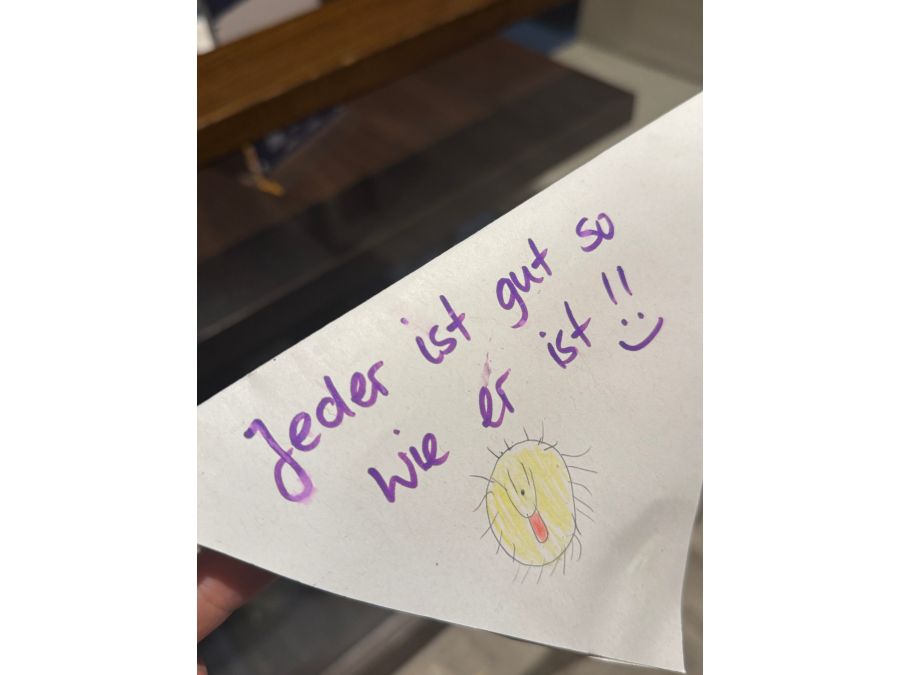 Jeder ist gut so
wie er ist!! :)